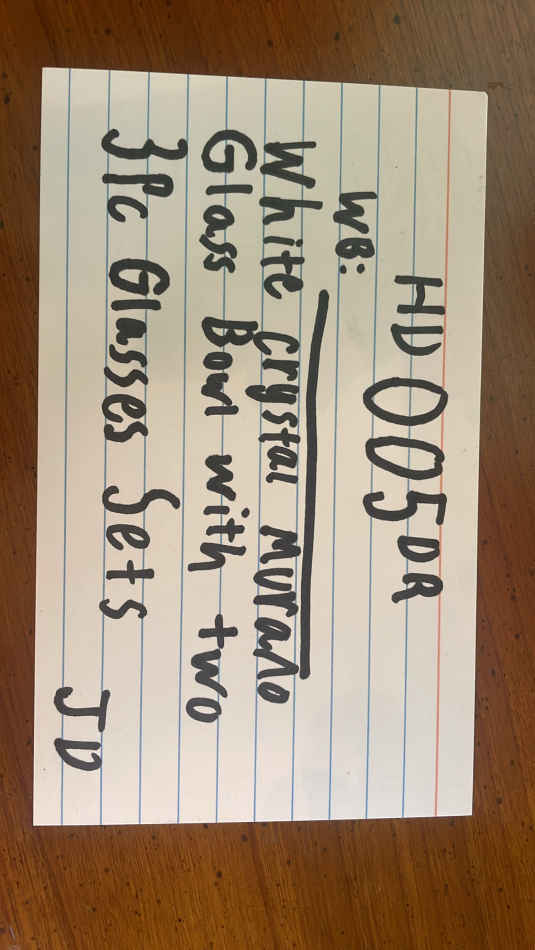 HD 005 DR
WB:
White Crystal Murano
Glass Bowl with two
3Pc Glasses Sets
JD